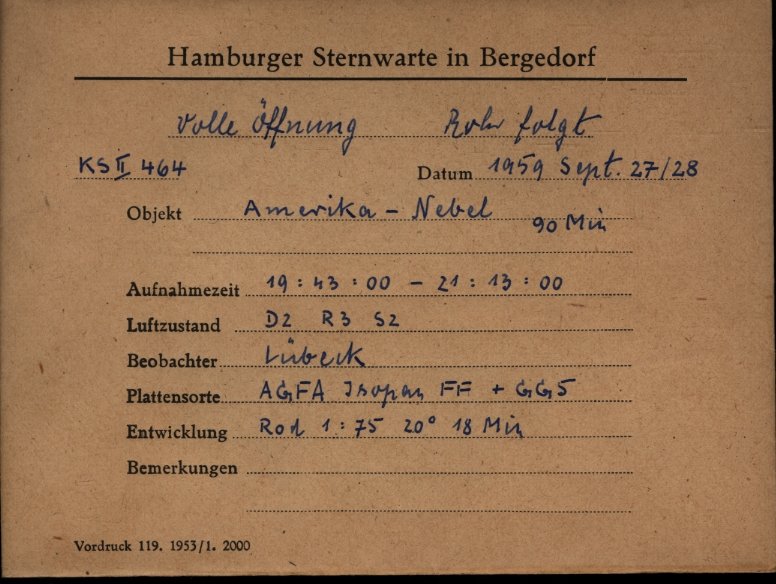 Hamburger Sternwarte in Bergedorf
Volle Öffnung Rohr folgt
KS II 464 Datum 1959 Sept. 27/28
Objekt Amerika - Nebel 90 Min
Aufnahmezeit 19:43:00 - 21:13:00
Luftzustand D2 R3 S2
Beobachter Lübeck
Plattensorte AGFA Isopan FF + GG5
Entwicklung Rod 1:75 20° 18 Min
Bemerkungen
Vordruck 119. 1953/1. 2000